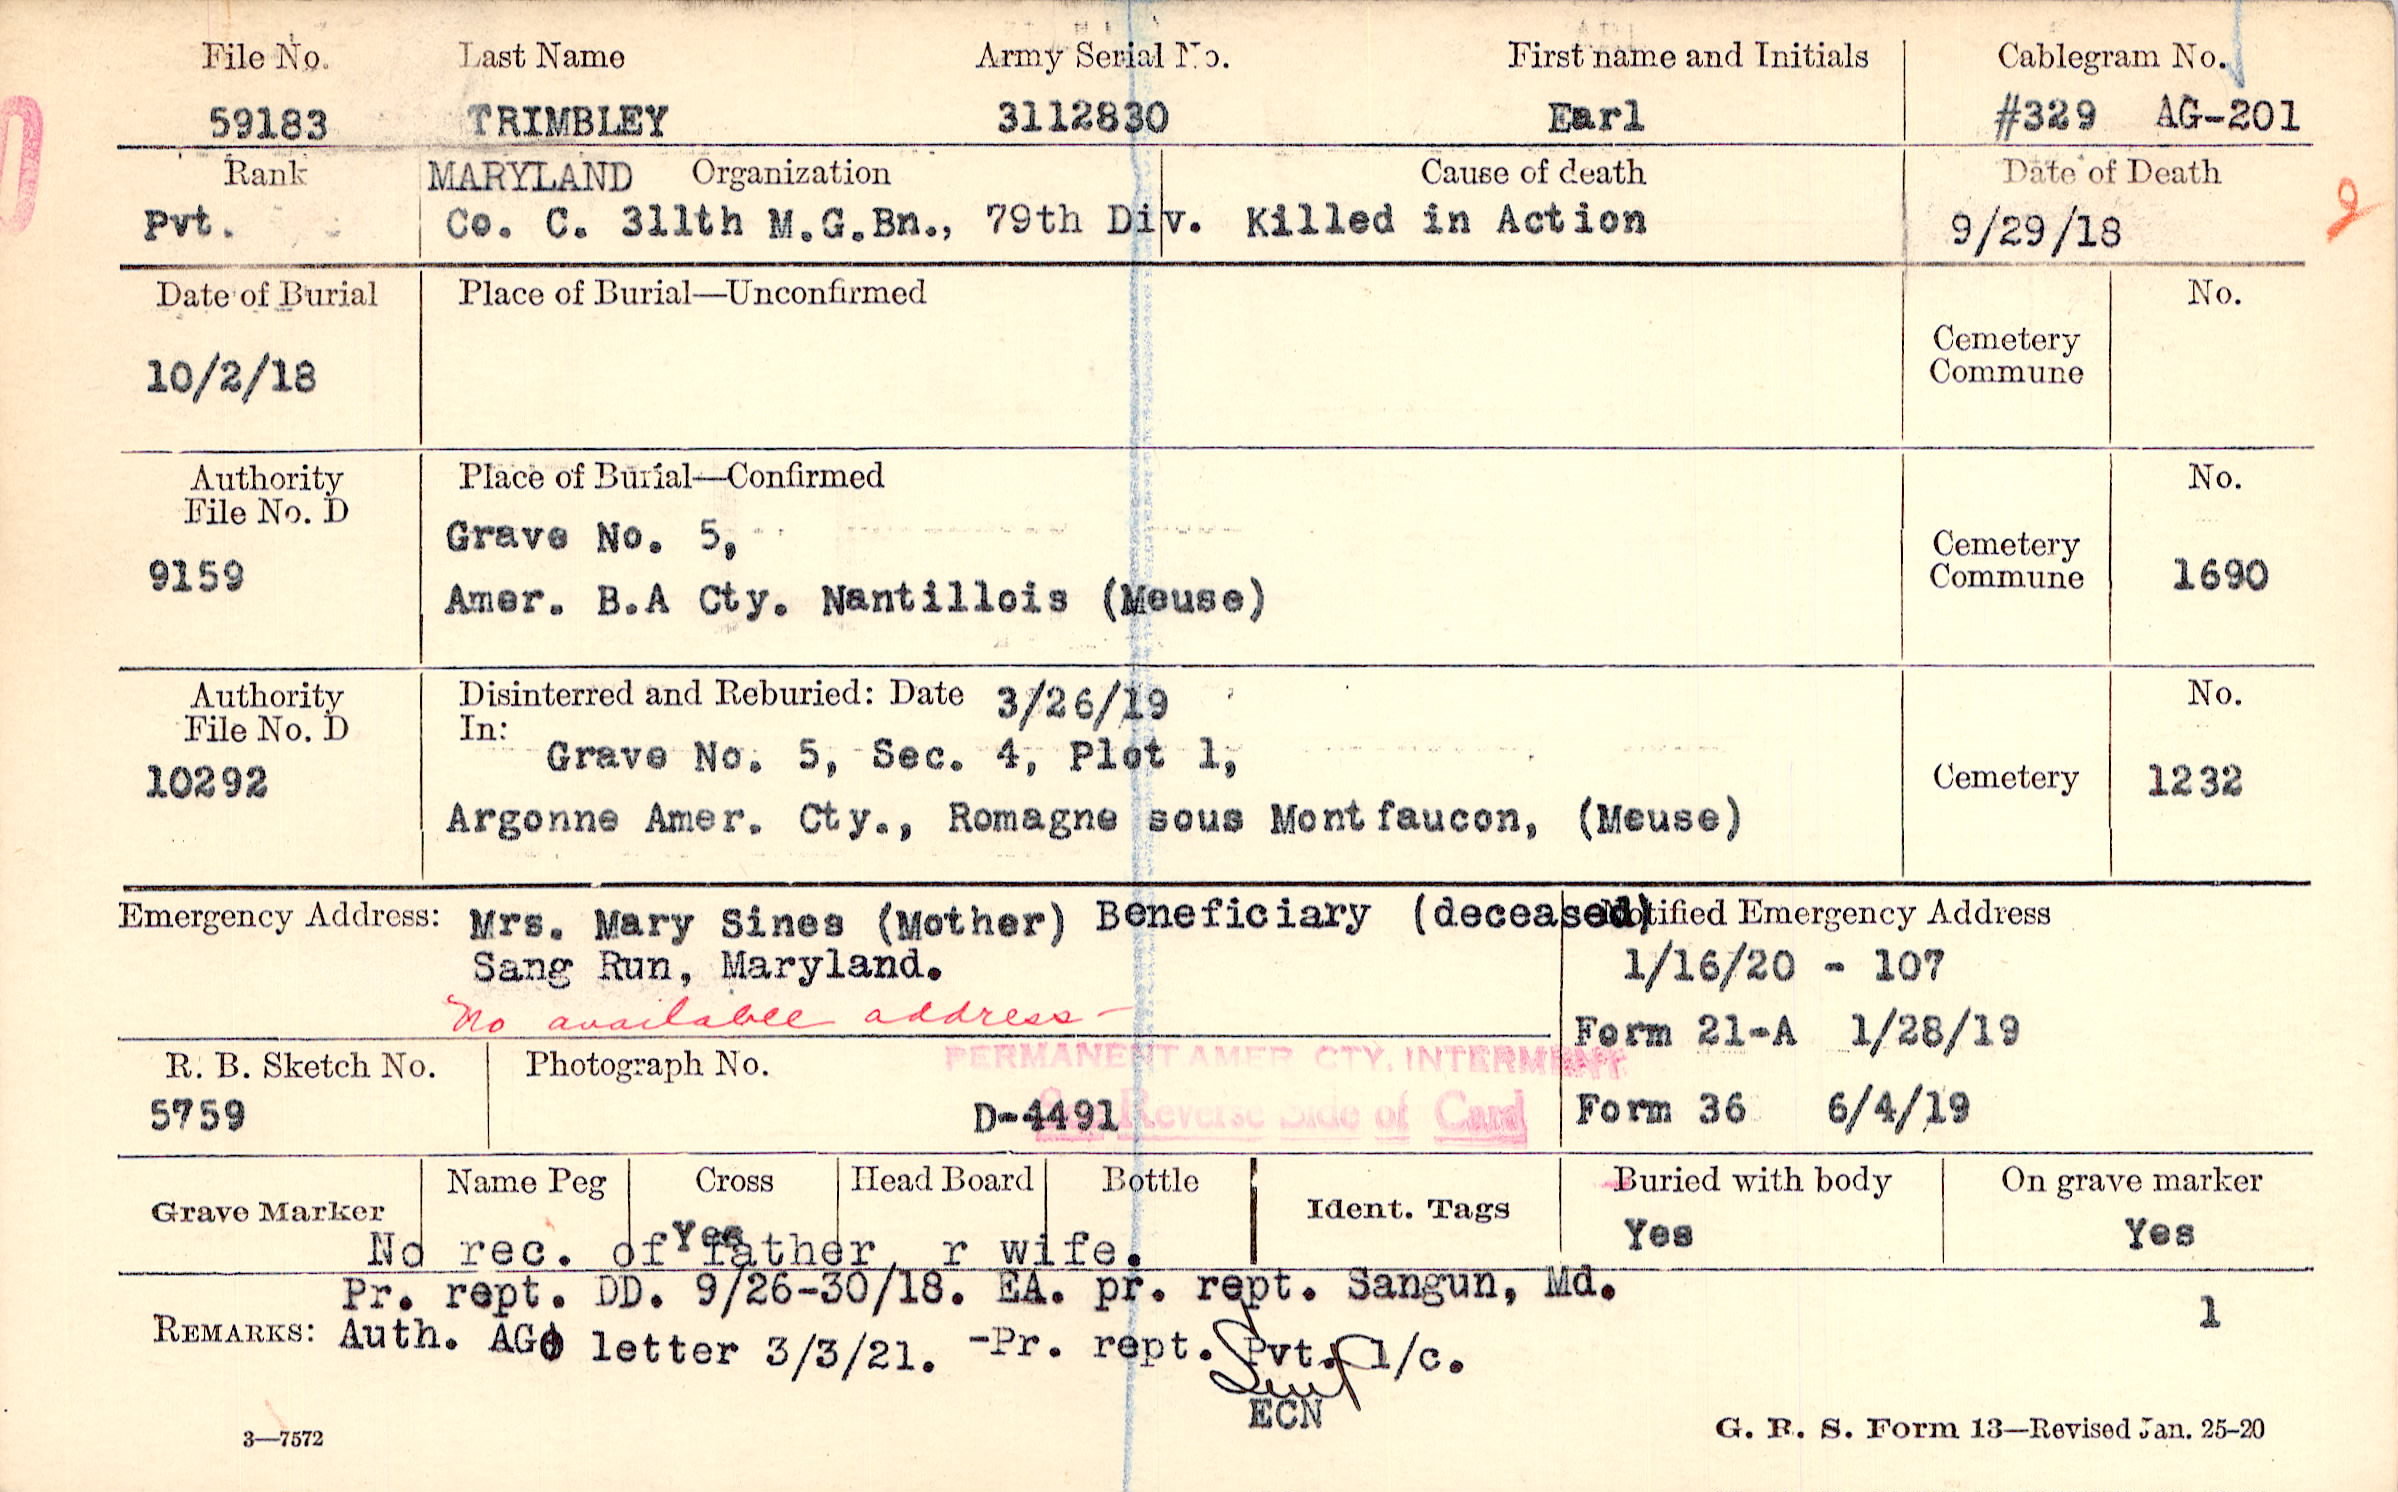 File No. Last Name Army Serial No. First name and Initials Cablegram No.
59183 TRIMBLEY 3112830 Earl #329 AG-201
Rank MARYLAND Organization Cause of death Date of Death
Pvt. Co. C. 311th M.G.Bn., 79th Div. Killed in Action 9/29/18
2
Date of Burial Place of Burial—Unconfirmed No.
Cemetery
Commune
10/2/18
Authority Place of Burial—Confirmed No.
File No. D
Grave No. 5,
Cemetery
Commune
9159 1690
Amer. B.A Cty. Nantillois (Meuse)
Authority Disinterred and Reburied: Date 3/26/19 No.
File No. D In:
Grave No. 5, Sec. 4, Plot 1,
10292 Cemetery 1232
Argonne Amer. Cty., Romagne sous Montfaucon, (Meuse)
Emergency Address: Mrs. Mary Sines (Mother) Beneficiary (deceased) Notified Emergency Address
Sang Run, Maryland. 1/16/20 - 107
No available address-
Form 21-A 1/28/19
R. B. Sketch No. Photograph No. PERMANENT AMER. CTY. INTERMENT
5759 D-4491 See Reverse Side of Card Form 36 6/4/19
Grave Marker Name Peg Cross Head Board Bottle Ident. Tags Buried with body On grave marker
Yes Yes Yes
No rec. of father r wife.
Pr. rept. DD. 9/26-30/18. EA. pr. rept. Sangun, Md.
1
REMARKS: Auth. AGO letter 3/3/21. -Pr. rept. Pvt. 1/c.
ECN
3—7572 G. R. S. Form 13—Revised Jan. 25-20